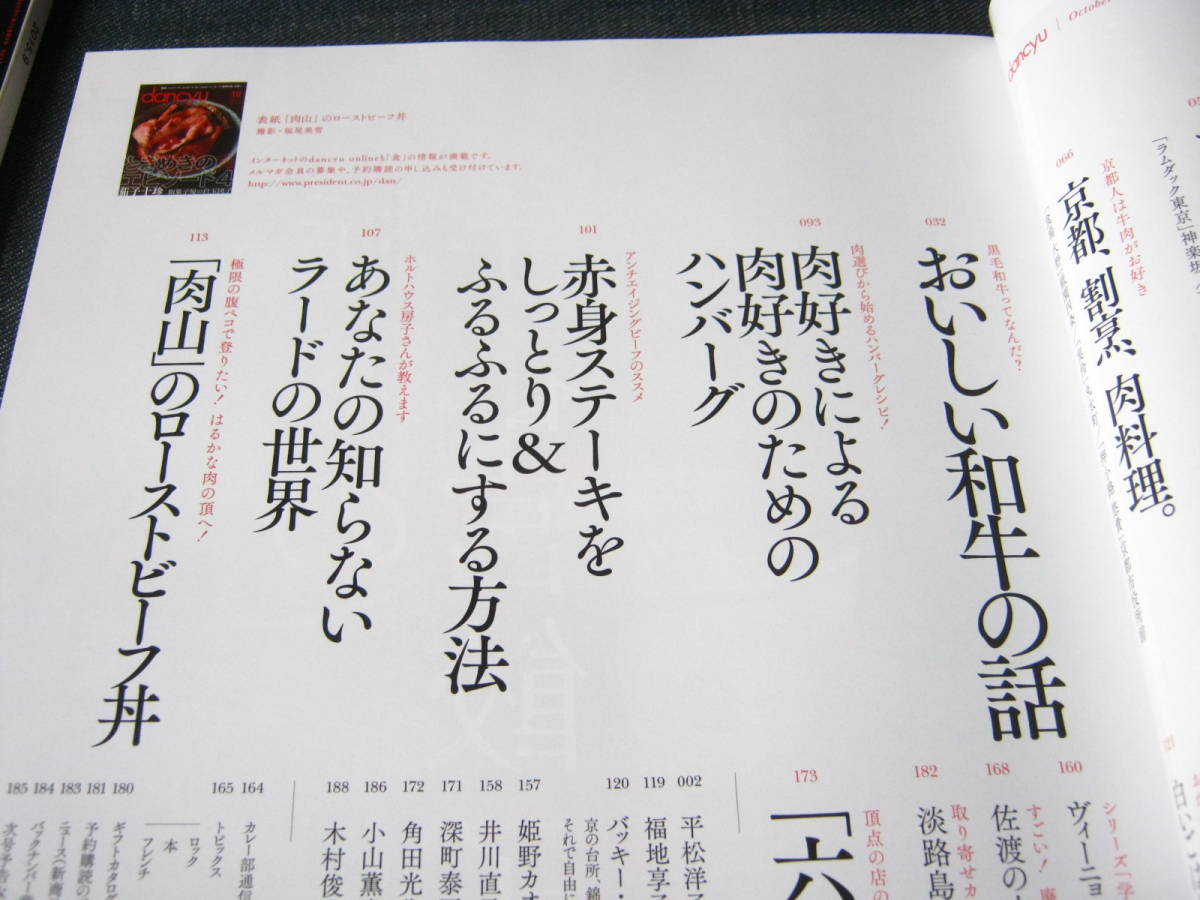 dancyu
October
dancyu
10
ときめきの
エピソード4
茄子十珍
表紙「肉山」のローストビーフ丼
撮影・福尾美雪
インターネットのdancyu onlineも「食」の情報が満載です。
メルマガ会員の募集や、予約購読の申し込みも受け付けています。
http://www.president.co.jp/dan/
「ラムダック東京」神楽坂
066
京都人は牛肉がお好き
京都、割烹、肉料理。
032
黒毛和牛ってなんだ?
おいしい和牛の話
093
肉選びから始めるハンバーグレシピ!
肉好きによる
肉好きのための
ハンバーグ
101
アンチエイジングビーフのススメ
赤身ステーキを
しっとり&
ふるふるにする方法
107
ホルトハウス房子さんが教えます
あなたの知らない
ラードの世界
113
極限の腹ペコで登りたい! はるかな肉の頂へ!
「肉山」のローストビーフ丼
121
160
シリーズ「学
ヴィーニョ
168
すごい!
佐渡の
182
取り寄せカ
淡路島
173
頂点の店の
「六
002
平松洋子
119
福地享子
120
バッキー・
京の台所、錦
それで自由に
157
姫野カオ
158
井川直子
171
深町泰
172
角田光
186
小山薫
188
木村俊
164
カレー部通信
165
トピックス
ロック
本
フレンチ
180
ギフトカタログ
181
予約購読の
183
ニュース〈新商
184
バックナンバー
185
次号予告